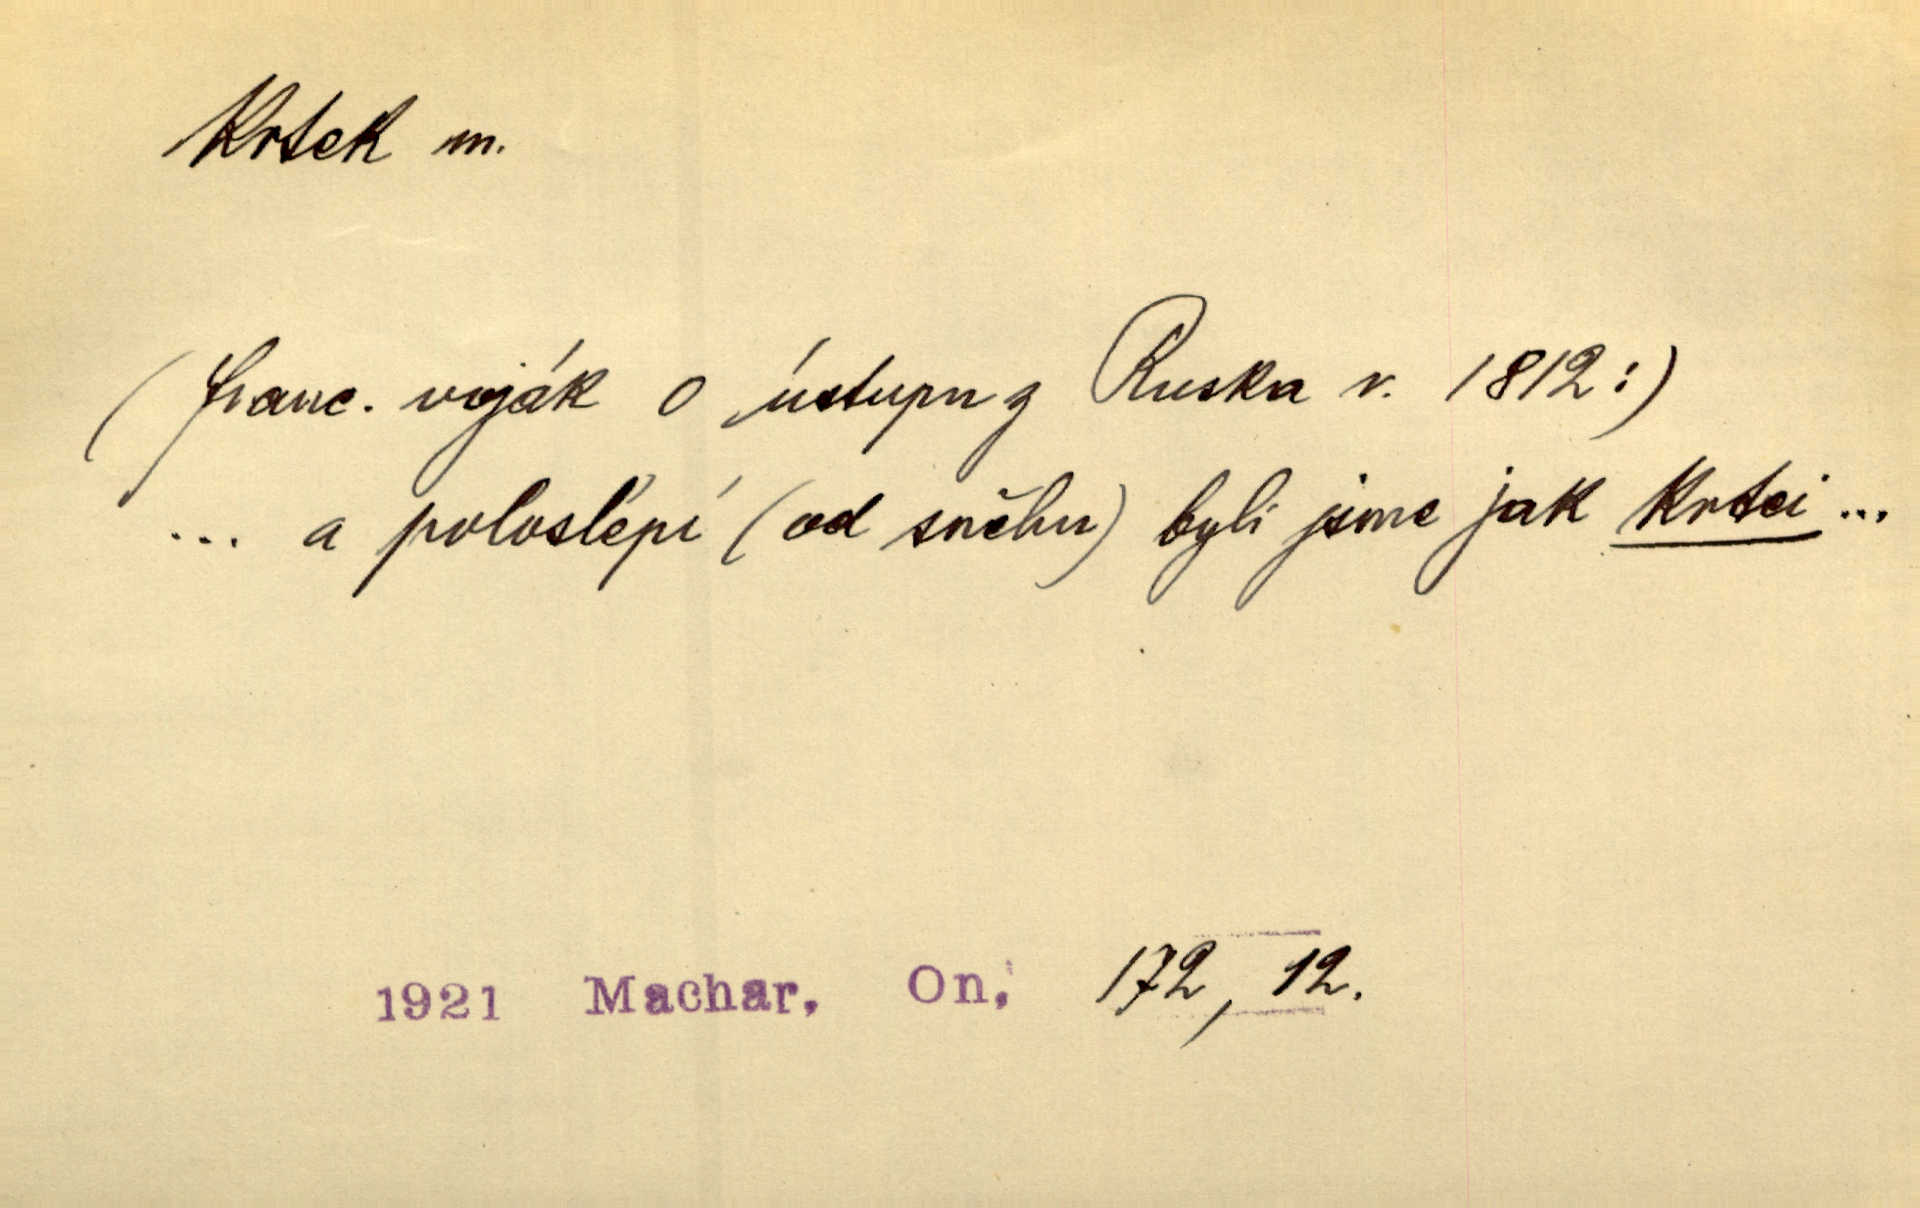 Krtek m.
(franc. voják o ústupu z Ruska v. 1812:)
... a poloslepí (od sněhu) byli jsme jak krtci ...
1921 Machar, On, 172, 12.